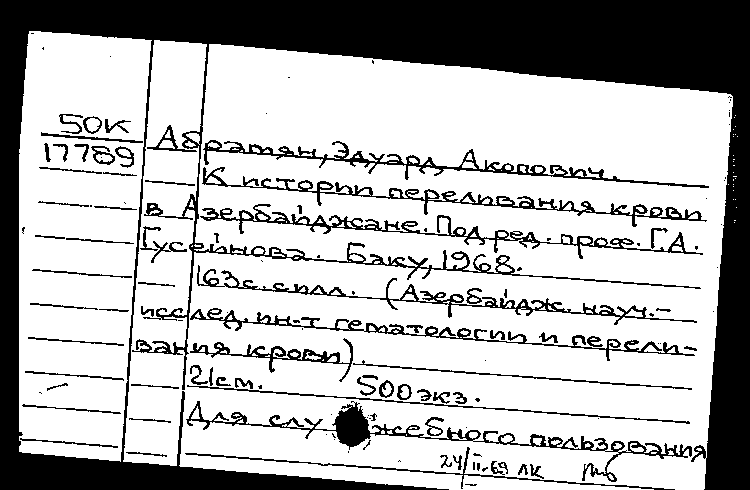 50К
17789
Абратян, Эдуард Акопович.
К истории переливания крови
в Азербайджане. Под ред. проф. Г.А.
Гусейнова. Баку, 1968.
163с. силл. (Азербайдж. науч.-
исслед. ин-т гематологии и перели-
вания крови).
21см. 500 экз.
Для служебного пользования
24/II-69 ЛК